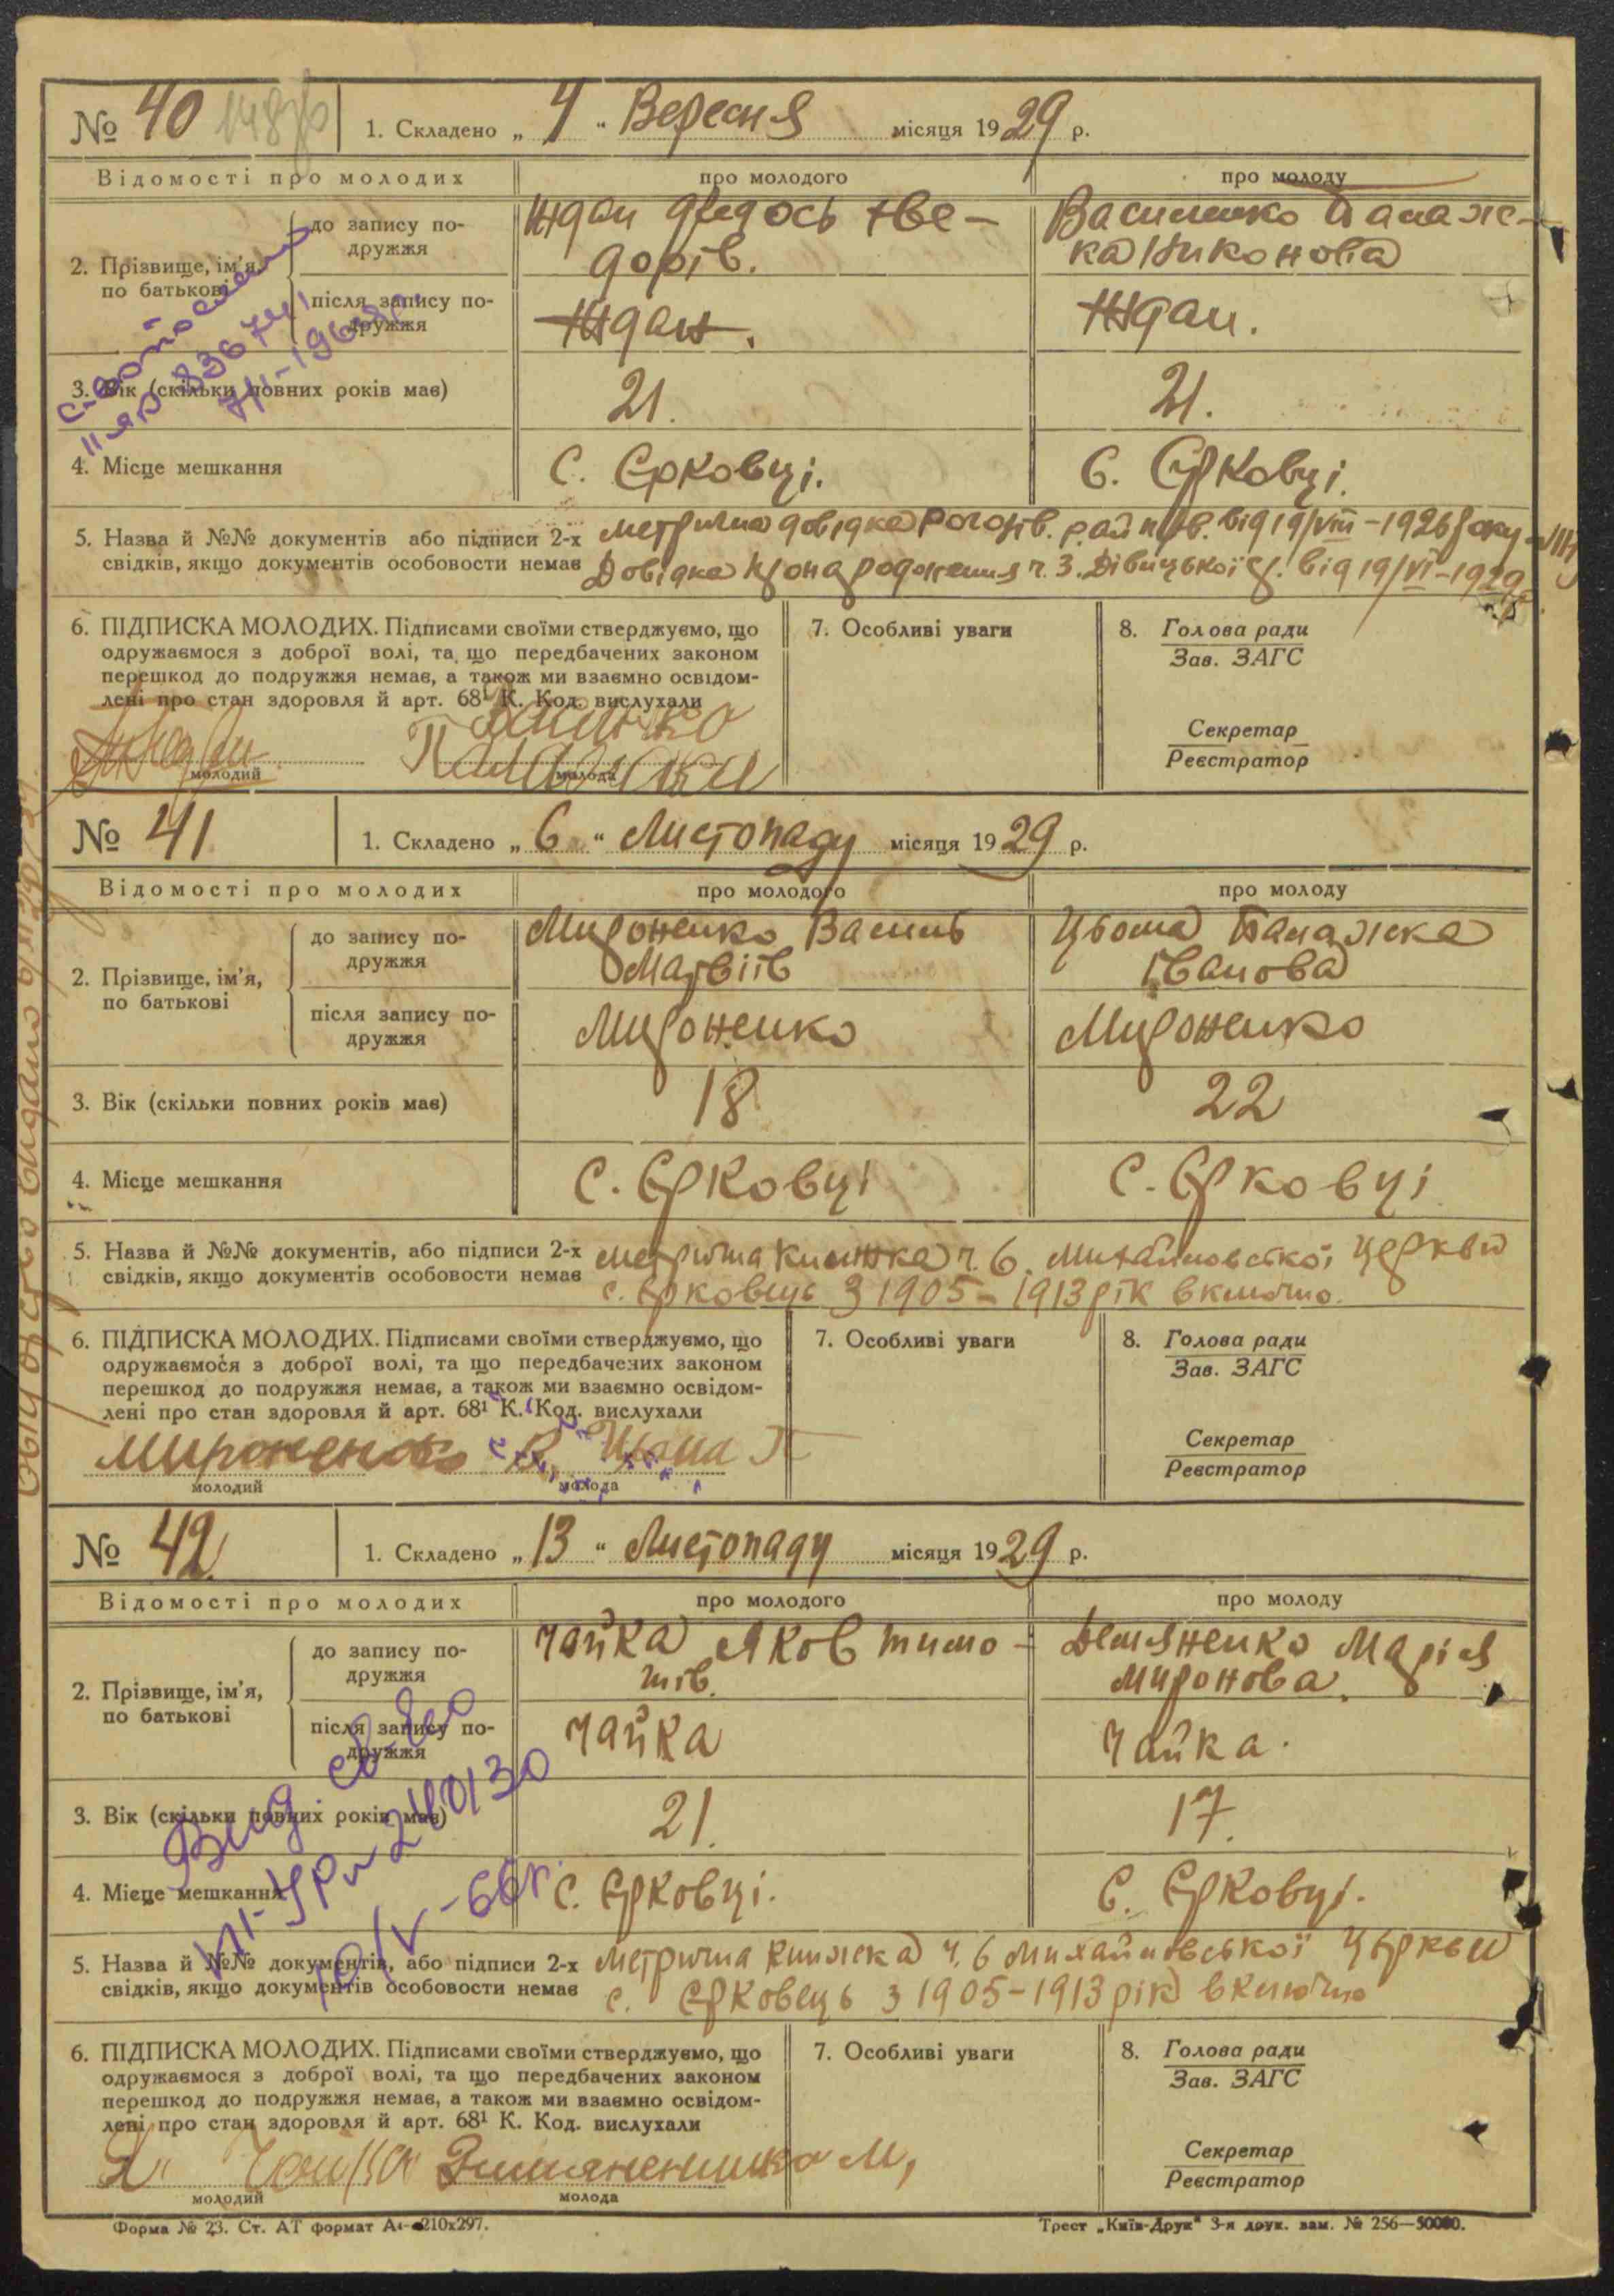 № 40
1. Складено „ 4 “ Вересня місяця 1929 р.
Відомості про молодих
про молодого
про молоду
2. Прізвище, ім'я, по батькові
до запису подружжя
Ждан Федось Фе-
дорів.
Василенко Палаж-
ка Никонова
після запису подружжя
Ждан.
Ждан.
3. Вік (скільки повних років має)
21.
21.
4. Місце мешкання
С. Єрковці.
С. Єрковці.
5. Назва й №№ документів або підписи 2-х
свідків, якщо документів особовости немає
метрична довідка Рогозів. райпов. від 19/VIII-1926 року
Довідка про народження ч. 3. Дівицької від 19/VI-1929
6. ПІДПИСКА МОЛОДИХ. Підписами своїми стверджуємо, що
одружаємося з доброї волі, та що передбачених законом
перешкод до подружжя немає, а також ми взаємно освідом-
лені про стан здоровля й арт. 68¹ К. Код. вислухали
Палажка
молодий
молода
7. Особливі уваги
8. Голова ради
Зав. ЗАГС
Секретар
Реєстратор
№ 41
1. Складено „ 6 “ Листопаду місяця 1929 р.
Відомості про молодих
про молодого
про молоду
2. Прізвище, ім'я,
по батькові
до запису по-
дружжя
Мироненко Василь
Матвіїв
Цьома Палажка
Іванова
після запису по-
дружжя
Мироненко
Мироненко
3. Вік (скільки повних років має)
18
22
4. Місце мешкання
С. Єрковці
С. Єрковці
5. Назва й №№ документів, або підписи 2-х
свідків, якщо документів особовости немає
метрична книжка ч. 6. Михайловської церкви
с. Єрковець з 1905-1913 рік включно.
6. ПІДПИСКА МОЛОДИХ. Підписами своїми стверджуємо, що
одружаємося з доброї волі, та що передбачених законом
перешкод до подружжя немає, а також ми взаємно освідом-
лені про стан здоровля й арт. 68¹ К. Код. вислухали
Мироненко В. Цьома П
молодий
молода
7. Особливі уваги
8. Голова ради
Зав. ЗАГС
Секретар
Реєстратор
№ 42
1. Складено „ 13 “ Листопаду місяця 1929 р.
Відомості про молодих
про молодого
про молоду
2. Прізвище, ім'я,
по батькові
до запису по-
дружжя
Чайка Яков Тимо-
шів.
Демяненко Марія
Миронова.
після запису по-
дружжя
Чайка
Чайка.
3. Вік (скільки повних років має)
21.
17.
Вид. св-во
240130
4. Місце мешкання
С. Єрковці.
С. Єрковці.
5. Назва й №№ документів, або підписи 2-х
свідків, якщо документів особовости немає
Метрична книжка ч. 6 Михайлівської церкви
с. Єрковець з 1905-1913 рік включно
6. ПІДПИСКА МОЛОДИХ. Підписами своїми стверджуємо, що
одружаємося з доброї волі, та що передбачених законом
перешкод до подружжя немає, а також ми взаємно освідом-
лені про стан здоровля й арт. 68¹ К. Код. вислухали
Я Чайка
молодий
молода
7. Особливі уваги
8. Голова ради
Зав. ЗАГС
Секретар
Реєстратор
Форма № 23. Ст. АТ формат А₄-210x297.
Трест „Київ-Друк“ 3-я друк. зам. № 256—50000.